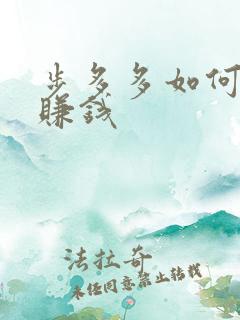 步多多如何
賺錢
法拉奇
未經同意禁止轉載